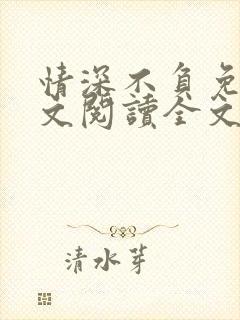 情深不負免
文閱讀全文
清水芽